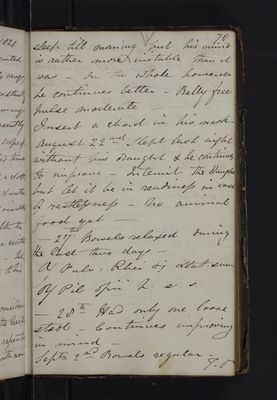 70
sleep till morning but his mind
is rather more unstable than it
was - On the whole however
he continues better - Belly free
pulse moderate
Insert a chord in his neck.
August 22nd Slept last night
without his draught & he continues
to improve - Intermit the draught
but let it be in readiness in case
of restlessness - No animal
food yet -
- 27th Bowels relaxed during
the last two days -
Pulv. Rhei
Pil Opii h. s. s.
- 28th Had only one loose
stool. Continues improving
in mind -
Septr 2nd Bowels regular.